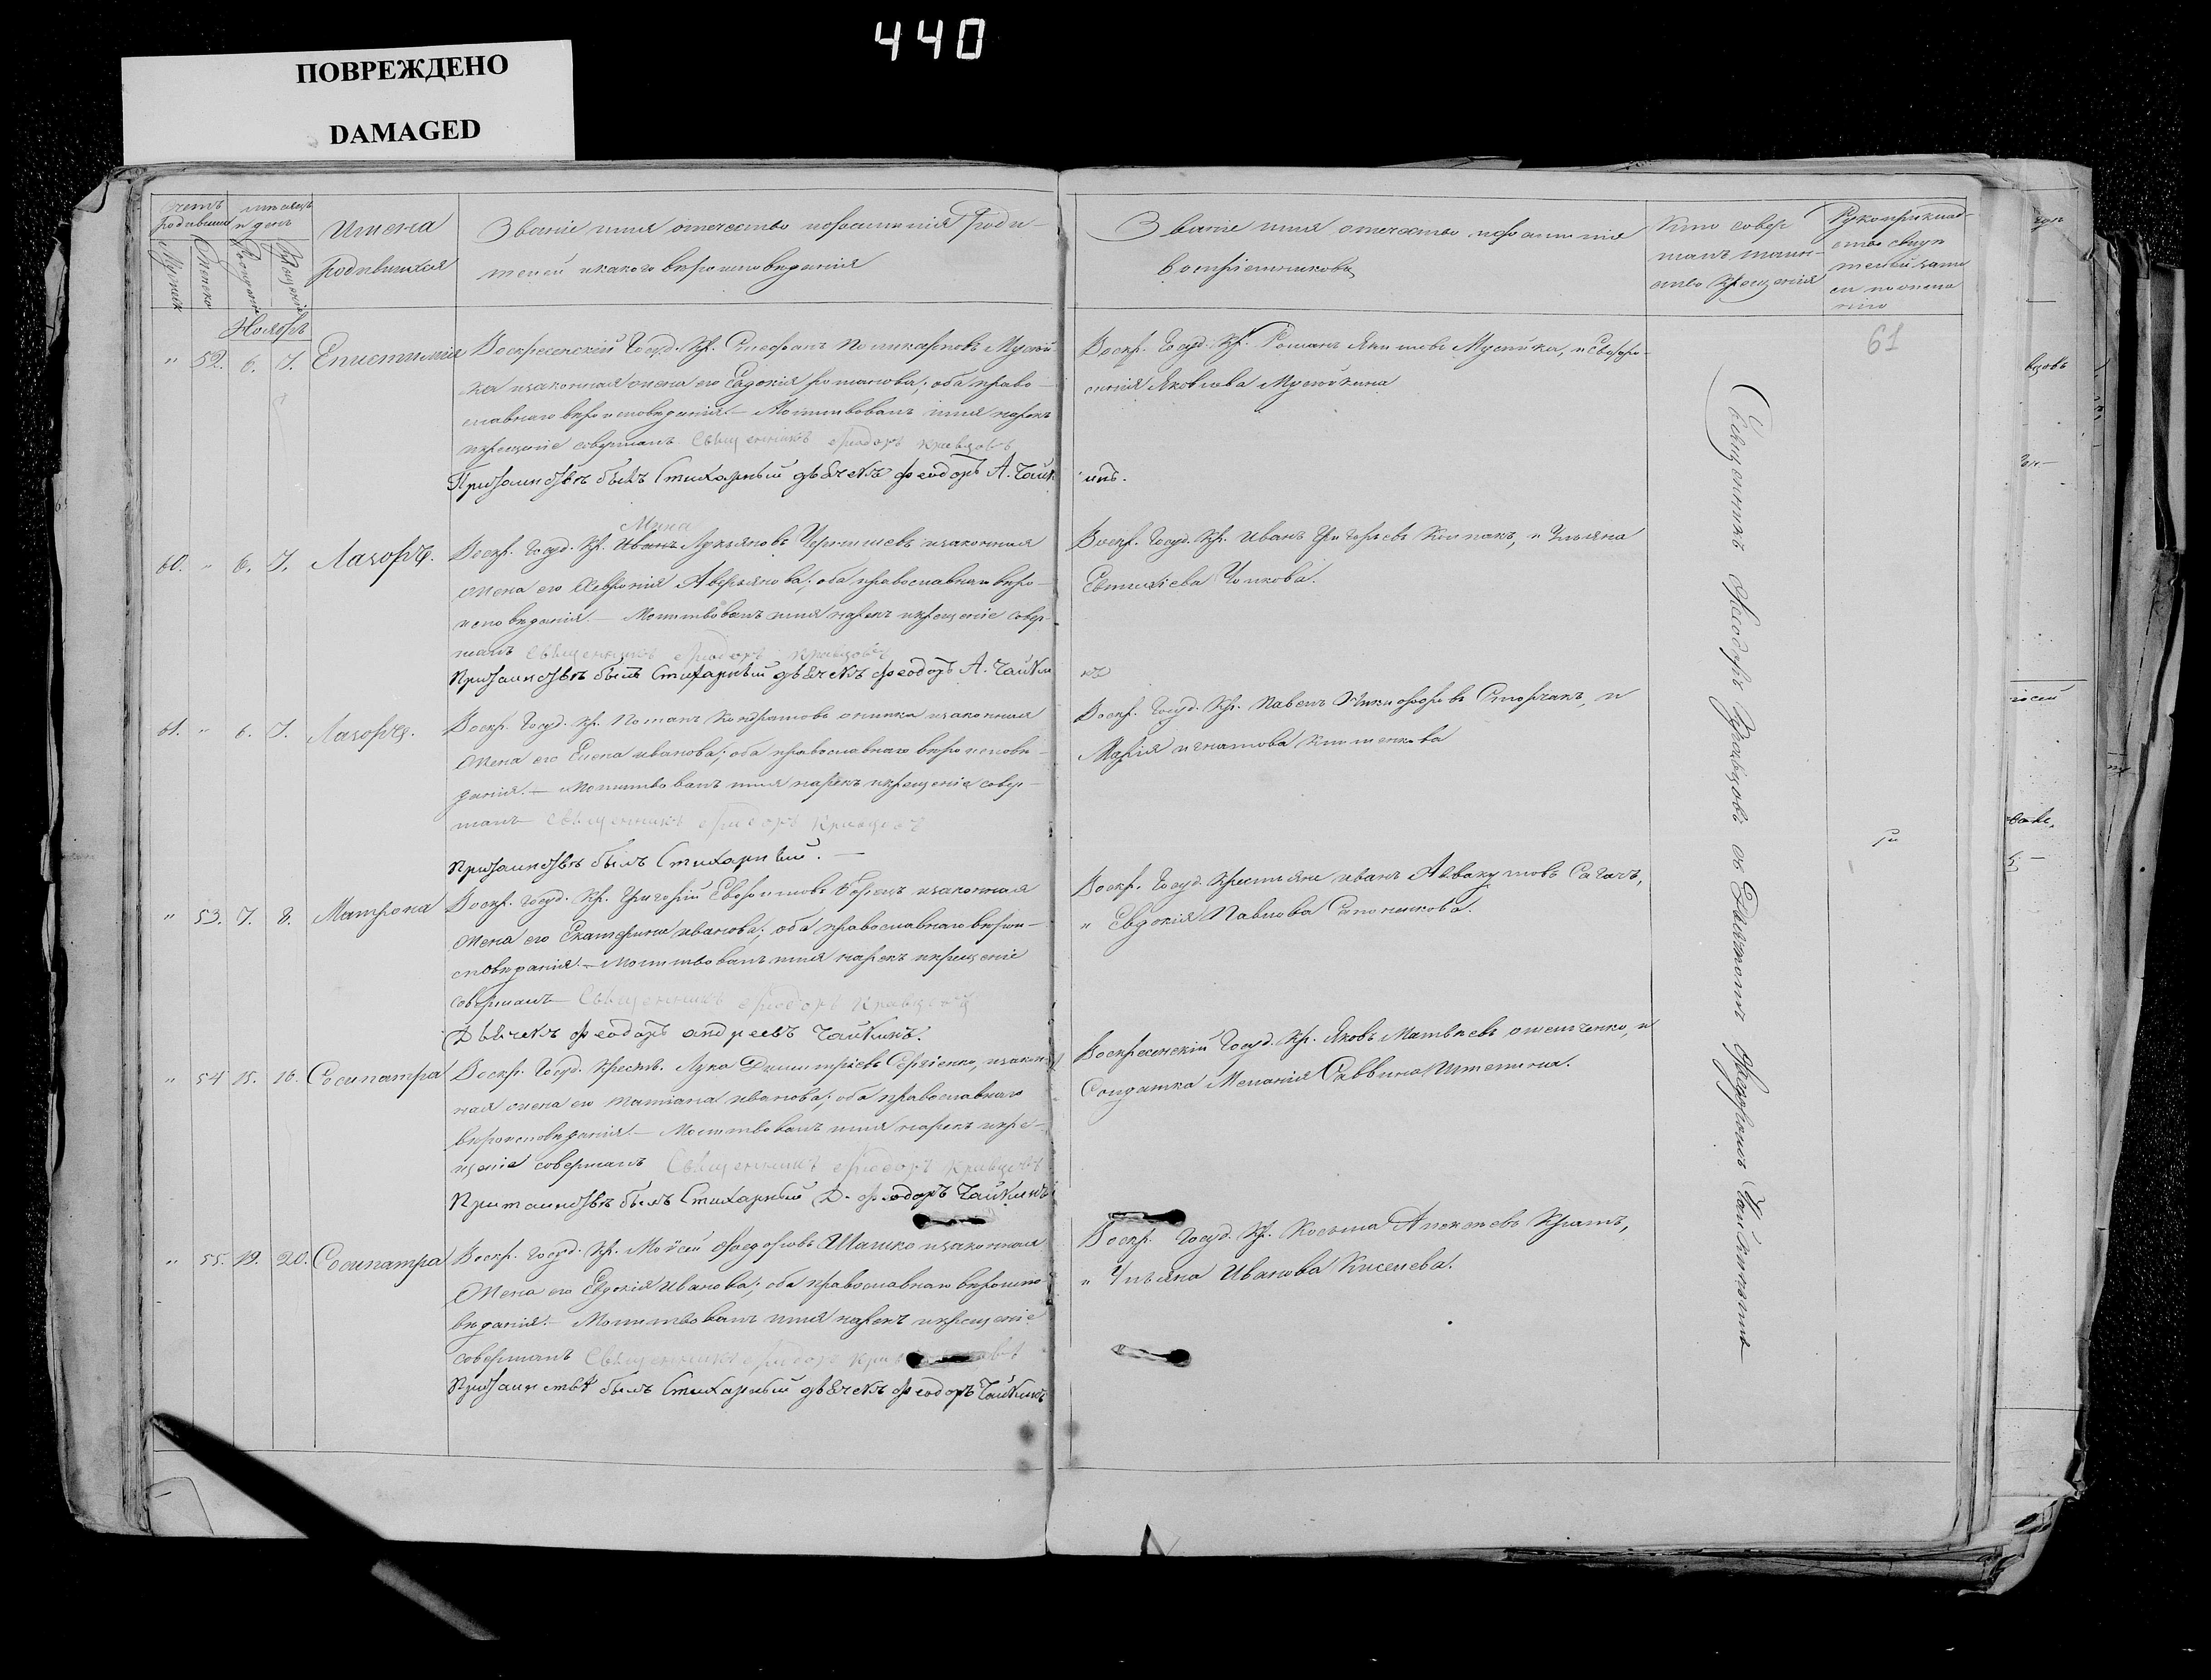 440
ПОВРЕЖДЕНО
DAMAGED
Имена
родившихся
Званіе имя отечество и фамилія роди-
телей и какого вероисповеданія
Званіе имя отечество и фамилія
воспріемниковъ
Кто совер
шалъ таин-
ство крещенія
Рукоприклад-
ство свиде
телей запи
си по жела
нію
61
Ноябрь
" 52. 6. 7. Епистимія
Воскресенскій Госуд. Кр. Стефанъ Поликарповъ
законная жена его Евдокія Романова; оба право-
славнаго вероисповеданія. — Молитвовалъ имя нарекъ
и крещеніе совершалъ Священникъ Феодоръ Кравцовъ
При таинствѣ былъ Стихарный дьячекъ Феодоръ А. Чайкинъ.
Воскр. Госуд. Кр. Романъ Мусійка, и Евфро-
синія Яковлева Мусійкина
60. " 6. 7. Лазорь.
Мина
Воскр. Госуд. Кр. Иванъ Лукьяновъ Чернышевъ и законная
жена его Феврогнія Аверьянова; оба православнаго веро-
исповеданія. — Молитвовалъ имя нарекъ и крещеніе совер-
шалъ Священникъ Феодоръ Кравцовъ
При таинствѣ былъ Стихарный дьячекъ Феодоръ А. Чайкинъ
Воскр. Госуд. Кр. Иванъ Григорьевъ Колпакъ, и Ульяна
Евтихіева
61. " 6. 7. Лазорь.
Воскр. Госуд. Кр. Потапъ Кондратовъ и законная
жена его Елена Иванова; оба православнаго вероиспове-
данія. — Молитвовалъ имя нарекъ и крещеніе совер-
шалъ Священникъ Феодоръ Кравцовъ
При таинствѣ былъ Стихарный. —
Воскр. Госуд. Кр. Павелъ Никифоровъ Сторчакъ, и
Марія Игнатова
" 53. 7. 8. Матрона
Воскр. Госуд. Кр. Григорій Ефремовъ и законная
жена его Екатерина Иванова; оба православнаго верои-
споведанія. — Молитвовалъ имя нарекъ и крещеніе
совершалъ Священникъ Феодоръ Кравцовъ
Дьячекъ Феодоръ Андреевъ Чайкинъ.
Воскр. Госуд. Крестьяне Иванъ Аввакумовъ Сагачъ,
и Евдокія Павлова Сапожникова.
" 54 15. 16. Сосипатра
Воскр. Госуд. Крест. Лука Димитріевъ Сергіенко, и закон-
ная жена его Татіана Иванова; оба православнаго
вероисповеданія. — Молитвовалъ имя нарекъ и кре-
щеніе совершалъ Священникъ Феодоръ Кравцовъ
При таинствѣ былъ Стихарный Д. Феодоръ Чайкинъ
Воскресенскій Госуд. Кр. Яковъ Матвѣевъ Омельченко, и
Солдатка Меланія Саввина
" 55. 19. 20. Сосипатра
Воскр. Госуд. Кр. Мойсей Федоровъ Шашко и законная
жена его Евдокія Иванова; оба православнаго вероиспо
веданія. — Молитвовалъ имя нарекъ и крещеніе
совершалъ Священникъ Феодоръ Кравцовъ
При таинствѣ былъ Стихарный дьячекъ Феодоръ Чайкинъ
Воскр. Госуд. Кр. Косьма Алексѣевъ Кратъ,
и Ульяна Иванова Киселева.
Священникъ Феодоръ Кравцовъ съ Дьячкомъ Феодоромъ Чайкинымъ